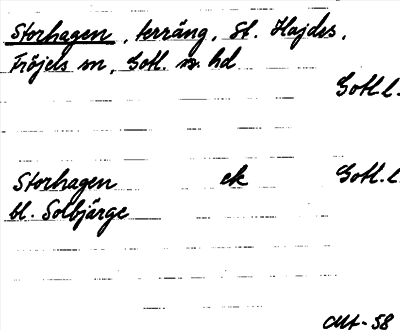 Storhagen, terräng, St. Hajdes,
Fröjels sn, Gotl. s. hd
Gotl.l.
Storhagen ek Gotl.l.
bl. Solbjärge
-58